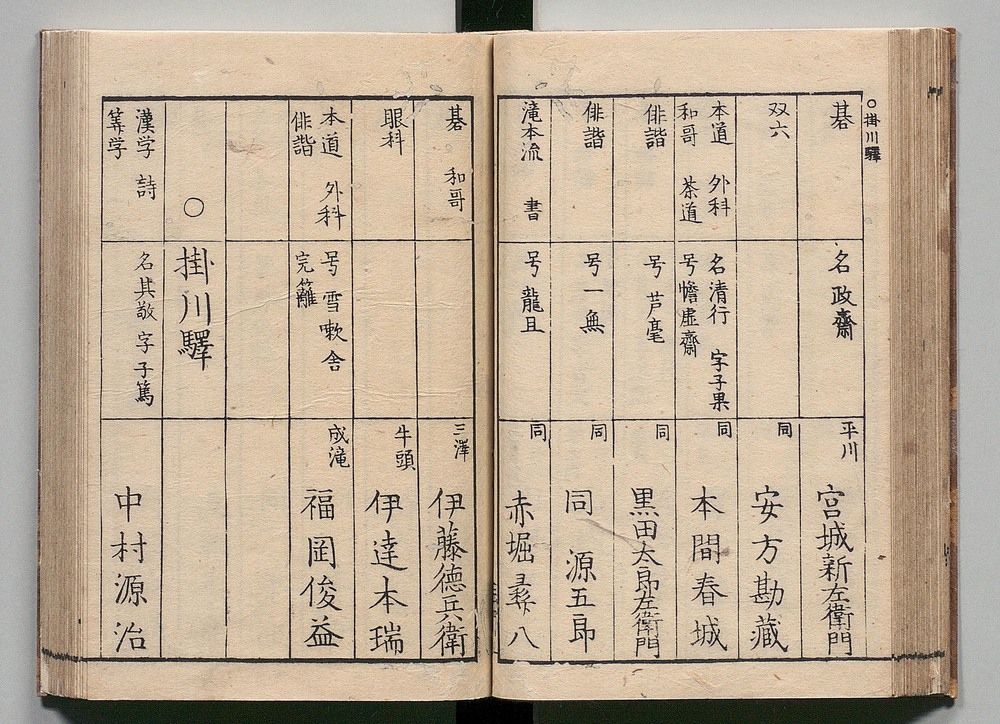 ○掛川驛
碁
名政齋
平川
宮城新左衛門
双六
同
安方勘藏
本道 外科
和哥 茶道
名清行 字子果
号憺虚齋
同
本間春城
俳諧
号芦毫
同
黒田太郎左衛門
俳諧
号一無
同
同 源五郎
滝本流 書
号龍且
同
赤堀彛八
碁 和哥
三澤
伊藤德兵衛
眼科
牛頭
伊達本瑞
本道 外科
俳諧
号雪嗽舎
完籬
成滝
福岡俊益
○掛川驛
漢学 詩
筭学
名其敬 字子篤
中村源治